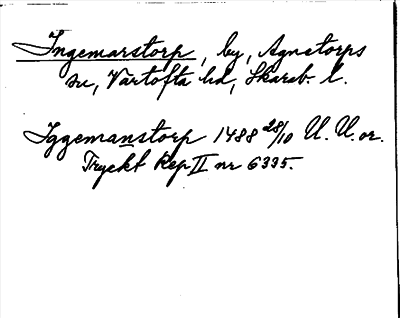 Ingemarstorp, by, Agnetorps
sn, Vartofta hd, Skarab. l.
Iggemanstorp 1488 28/10 U. U. or.
Tryckt Rep II nr 6335.